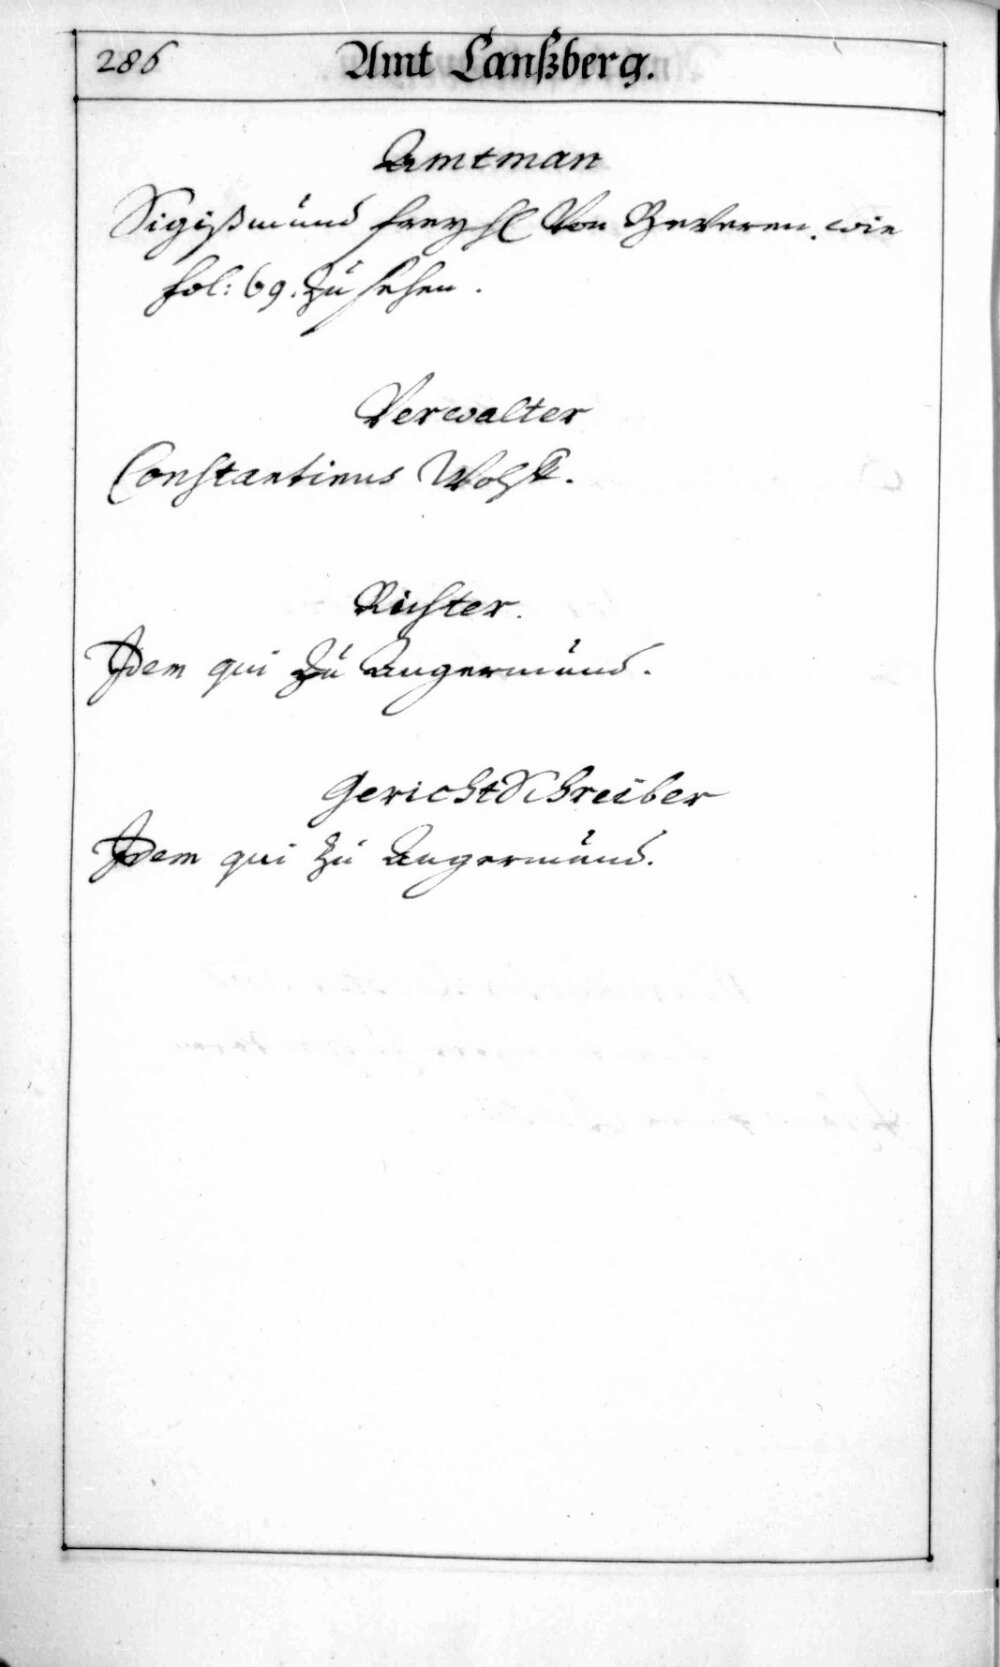 286
Amt Lanßberg.
Amtman
Sigißmund freyh von Beveren, wie
fol: 69. zu sehen.
Verwalter
Constantinus
Richter.
Idem qui zu Angermund.
Gerichtschreiber
Idem qui zu Angermund.